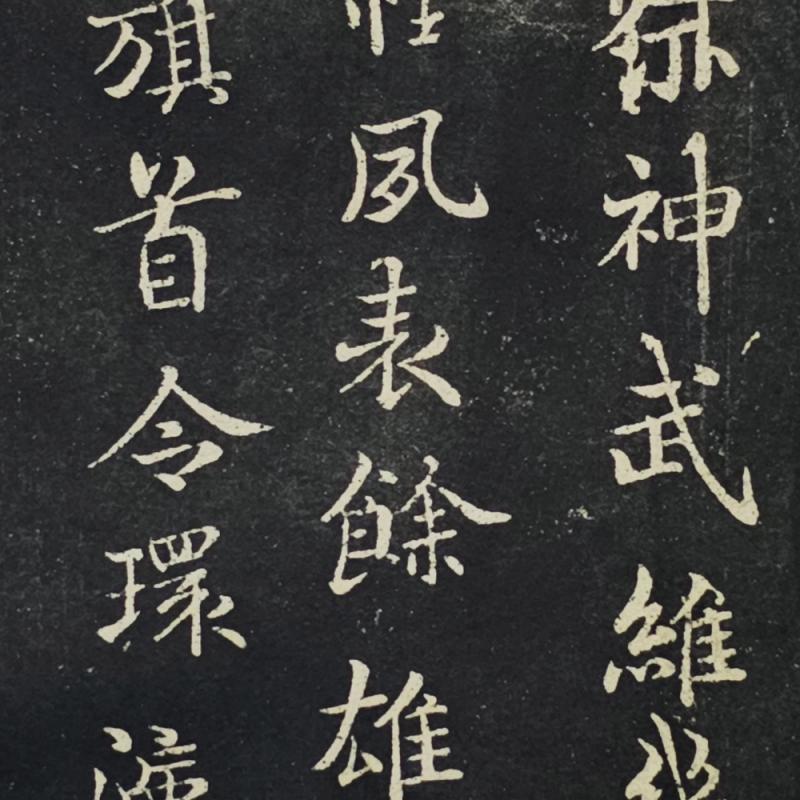 神武維
夙表餘雄
旗首令環